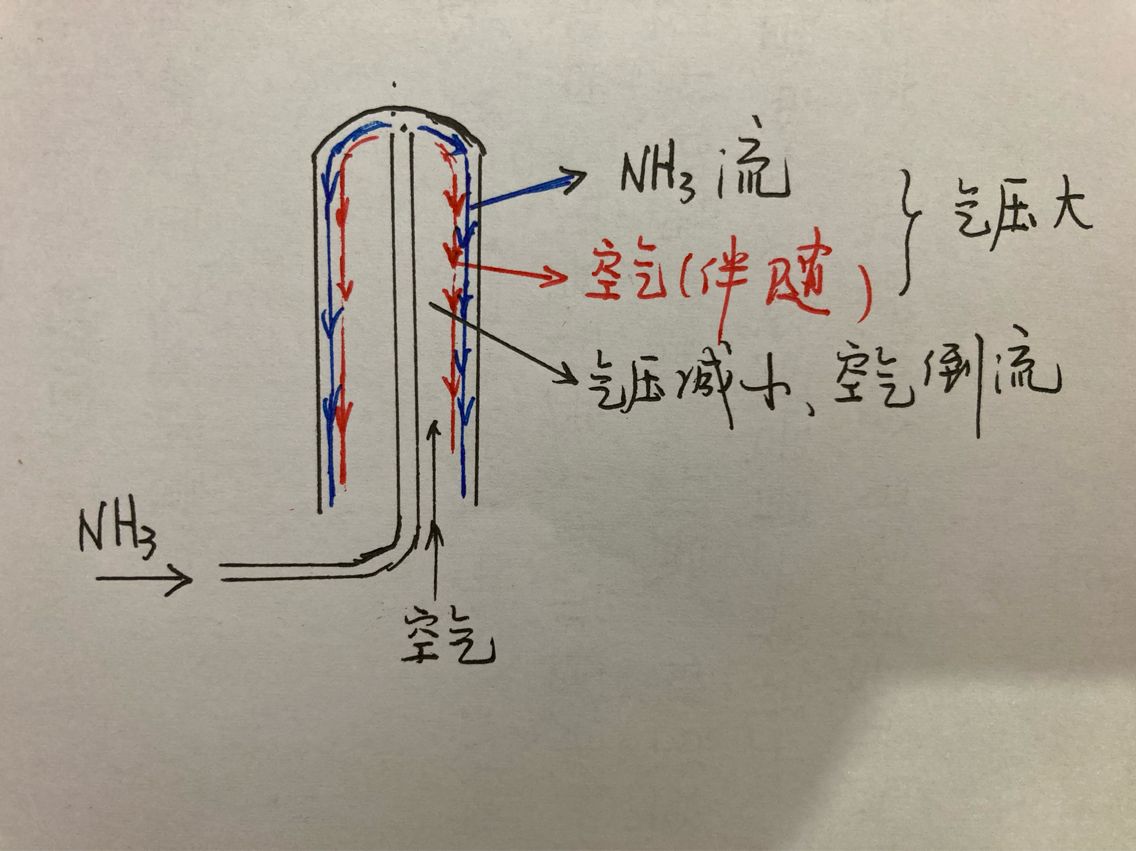 NH3流
气压大
空气(伴随)
气压减小、空气倒流
NH3
空气